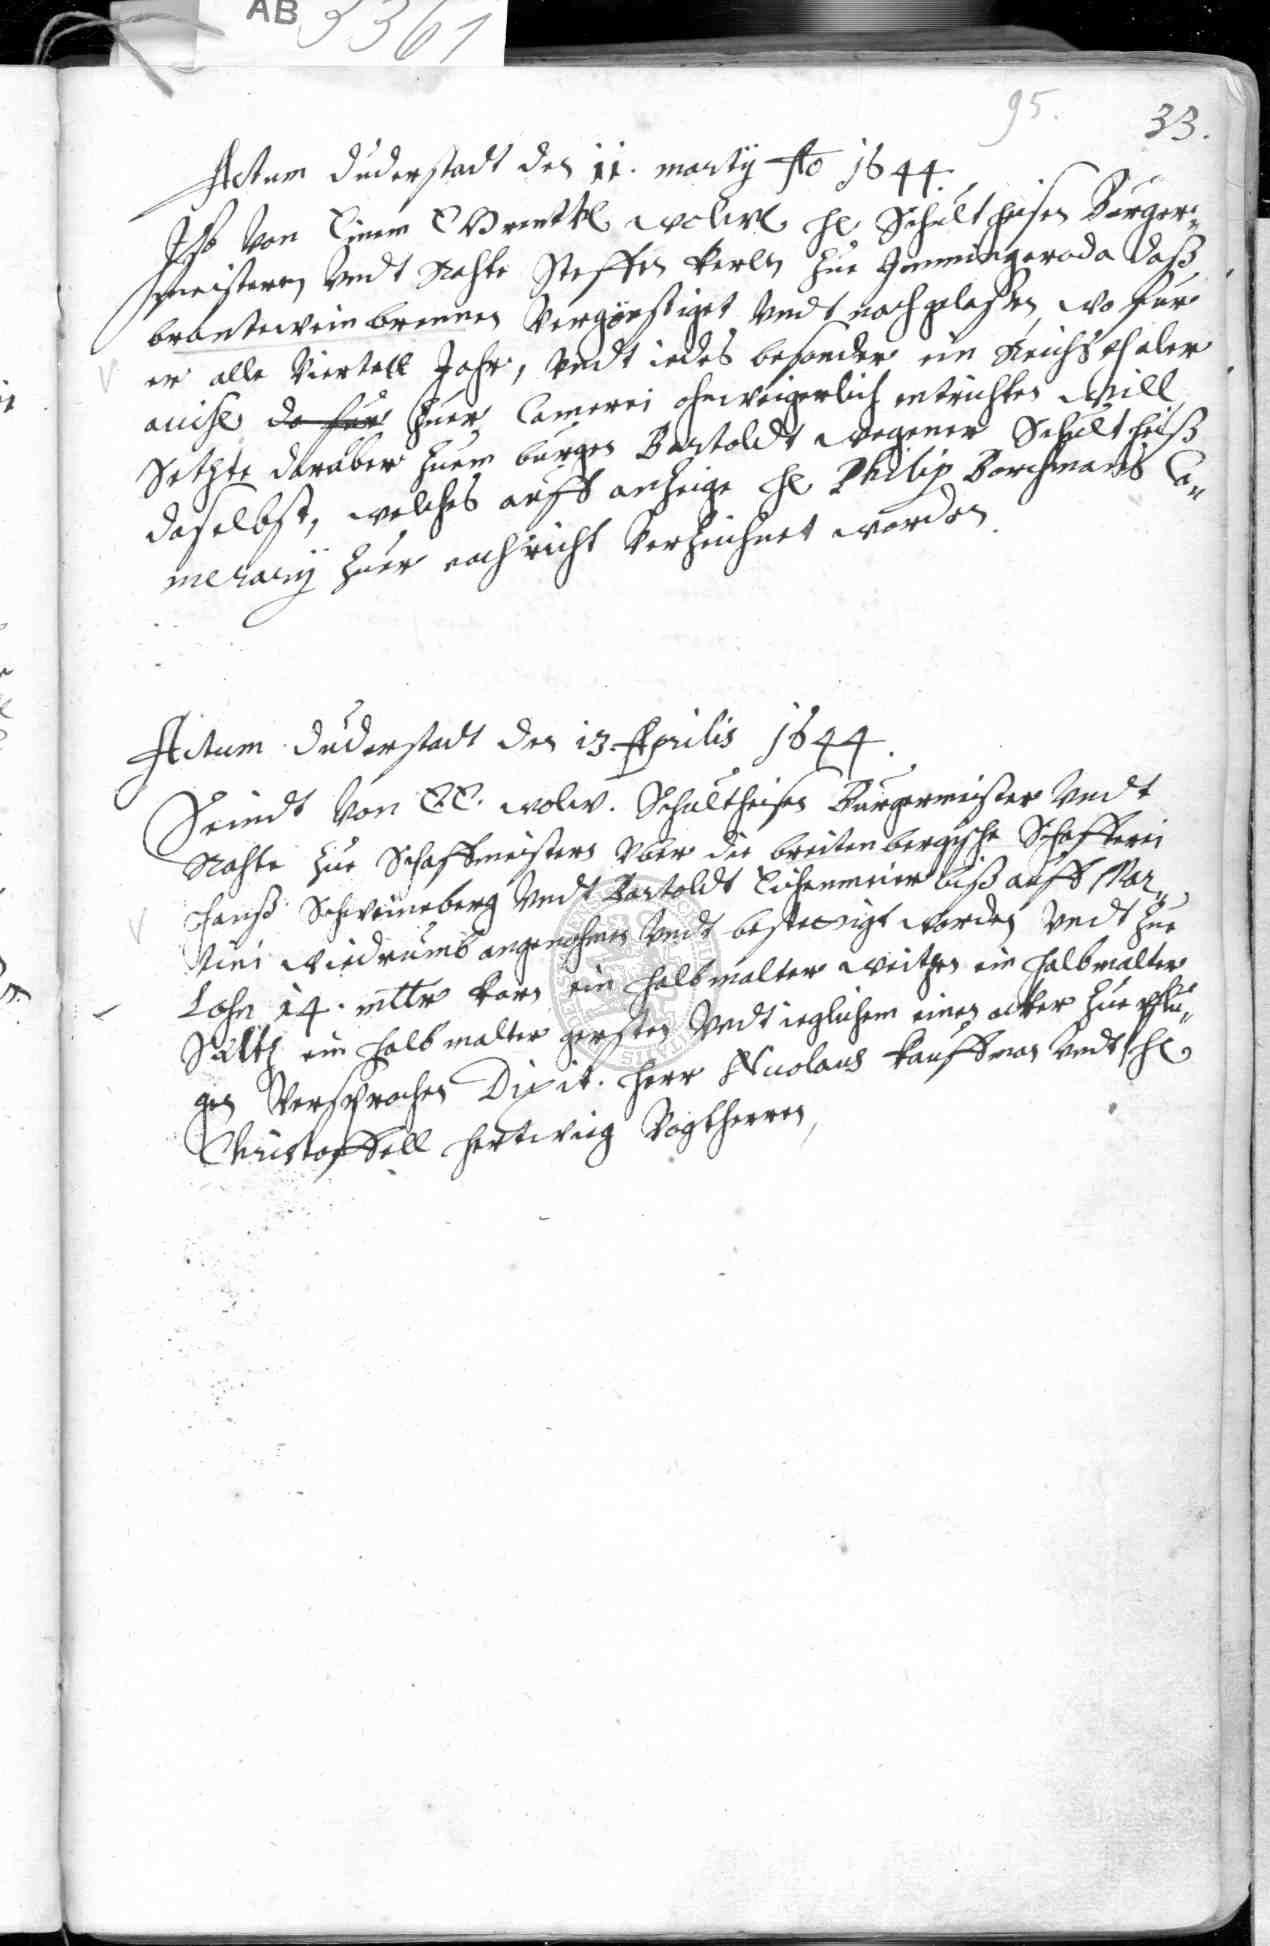 AB 3361
95. 33.
Actum Duderstadt den 11. martij Ao 1644.
Ist von Einem Wolw. H. Schultheisen Burger-
meistern undt Rahte Steffen Kerln zue Gemmingeroda daß
brantewein brennen vergönstiget undt nachgelaßen, wo fur
er alle Viertell Jahr, undt iedes besonder ein Reichsthaler
da fur zuer Camerei ohnweigerlich entrichten will
Setzte daruber zuem burgen Bartoldt Wegener Schultheiß
daselbst, welches auff anzeige H. Philip Borchmans Ca-
merarij zuer nachricht verzeichnet worden.
Actum Duderstadt den 13. Aprilis 1644.
Seindt von E.E. wolw. Schultheisen Burgermeister undt
Rahte zue Schaffmeistern uber die breitenbergische Schefferei
Hanß Schweineberg undt Bartoldt Eichenmeier biß auff Mar-
tini wiedrumb angenohmen undt bestetigt worden undt zue
Lohn 14. mltr korn ein halb malter weitzen ein halb malter
Saltz ein halb malter gersten undt ieglichem einen acker zue pflu-
gen versprochen Dixit. Herr Nicolaus Kauffman undt H.
Christoffell Hertwig Vogtherren,